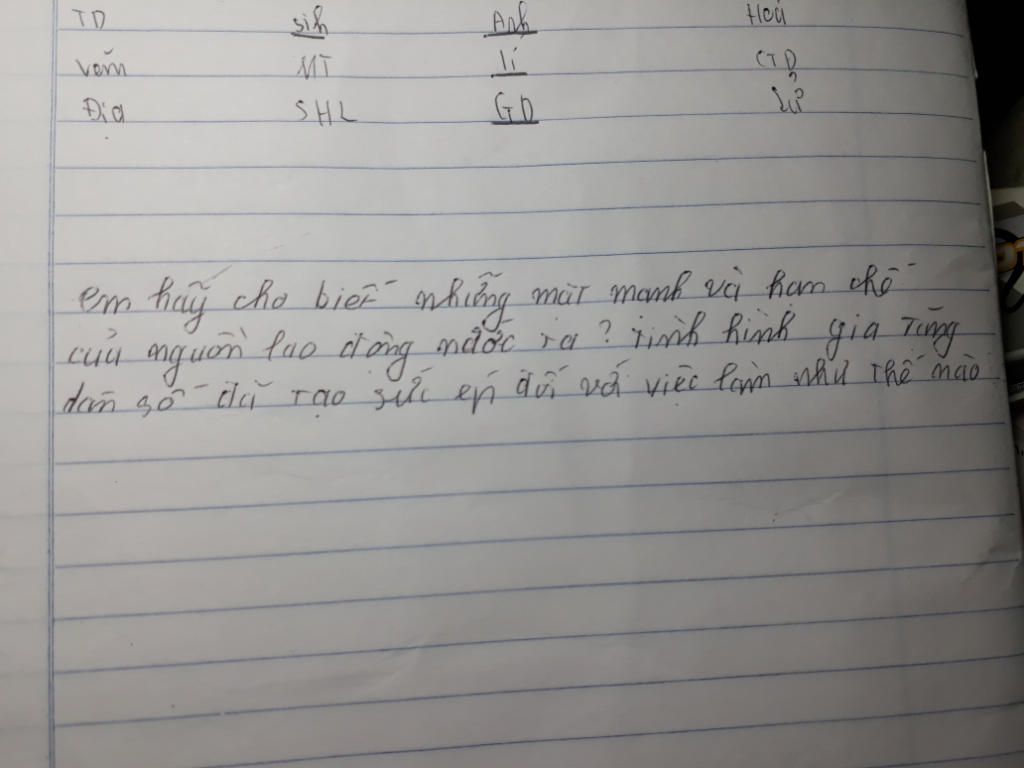 TD sinh Anh Hoá
Văn MT lí CTD
Địa SHL GD Sử
em hãy cho biết những mặt mạnh và hạn chế
của nguồn lao động nước ta? tình hình gia tăng
dân số đã tạo sức ép đối với việc làm như thế nào